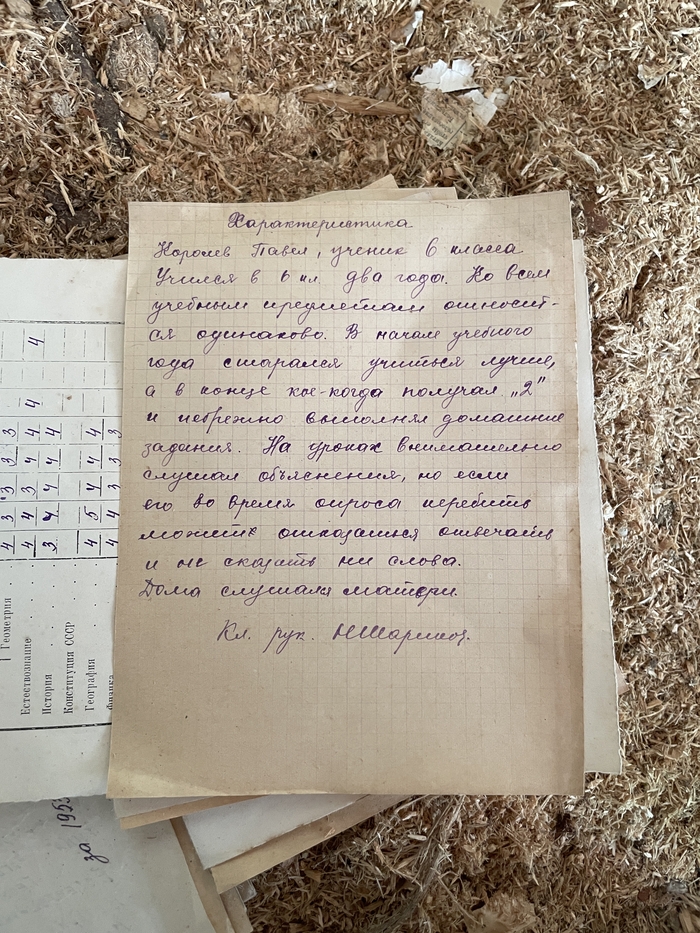 Характеристика
Королев Павел, ученик 6 класса
Учился в 6 кл. два года. Ко всем
учебным предметам относит-
ся одинаково. В начале учебного
года старался учиться лучше,
а в конце кое-когда получал „2"
и небрежно выполнял домашние
задания. На уроках внимательно
слушал объяснения, но если
его во время опроса перебить
может отказаться отвечать
и не сказать ни слова.
Дома слушался матери.
Кл. рук.
Геометрия
4 3 3 3 3
Естествознание
4 4 4 4 4 4 4
История
3 4 4 4 4
Конституция СССР
География
4 5 4 4 4
Физика
4 4 3 3 3
за 195